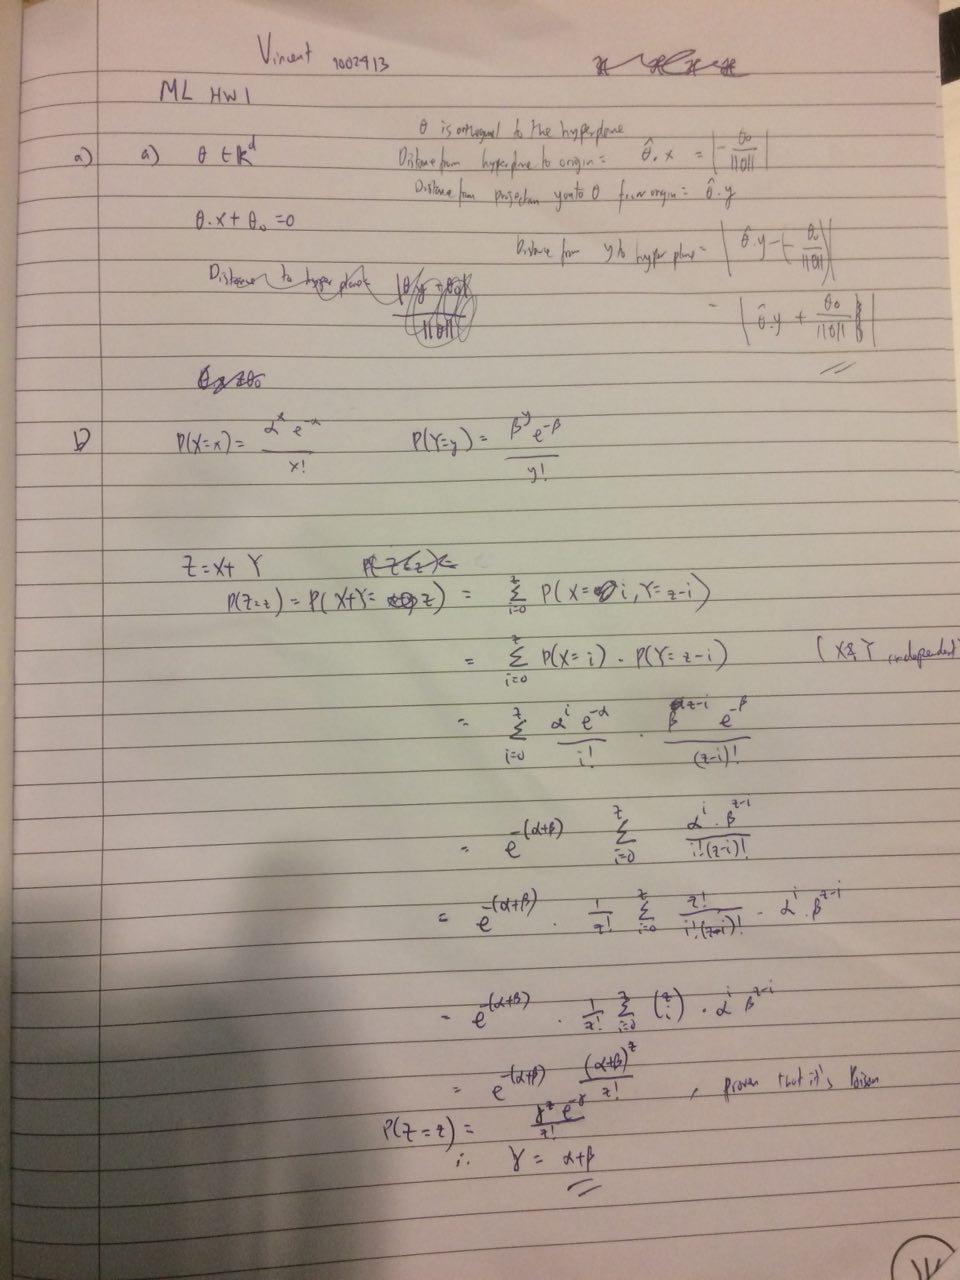 Vincent 1002413
ML HW1
a) a) θ ∈ ℝ^d
θ is orthogonal to the hyperplane
Distance from hyperplane to origin = θ̂.x = |-θ₀/||θ|||
Distance from projection y onto θ from origin = θ̂.y
θ.x + θ₀ = 0
Distance from y to hyperplane = |θ̂.y - (-θ₀/||θ||)|
Distance to hyperplane = |θ.y + θ₀|/||θ||
= |θ̂.y + θ₀/||θ|||
b) P(X=x) = α^x e^-α / x! P(Y=y) = β^y e^-β / y!
Z = X+Y
P(Z=z) = P(X+Y = z) = Σ_{i=0}^{z} P(X= i, Y= z-i)
= Σ_{i=0}^{z} P(X= i) . P(Y= z-i) (X & Y independent)
= Σ_{i=0}^{z} α^i e^-α / i! . β^{z-i} e^-β / (z-i)!
= e^-(α+β) Σ_{i=0}^{z} α^i . β^{z-i} / i!.(z-i)!
= e^-(α+β) . 1/z! Σ_{i=0}^{z} z! / i!(z-i)! - α^i . β^{z-i}
= e^-(α+β) . 1/z! Σ_{i=0}^{z} (z i) . α^i β^{z-i}
= e^-(α+β) (α+β)^z / z! , proven that it's Poison
P(Z=z) = γ^z e^-γ / z!
∴ γ = α+β